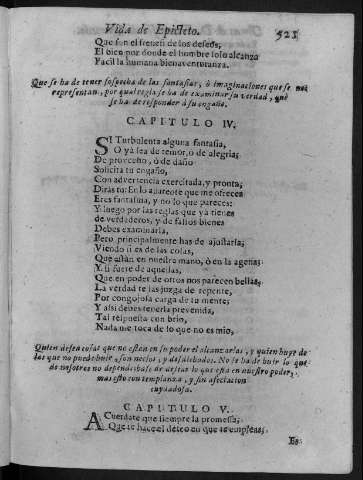 Vida de Epicteto. 525
Que son el frenesi de los deseos,
El bien por donde el hombre solo alcança
Facil la humana bienaventurança.
Que se ha de tener sospecha de las fantasias, ò imaginaciones que se nos
representan, por qual regla se ha de examinar su verdad, què
se ha de responder à su engaño.
CAPITULO IV.
SI Turbulenta alguna fantasia,
O ya sea de temor, ò de alegria;
De provecho, ò de daño
Solicita tu engaño,
Con advertencia exercitada, y pronta;
Diràs tu: En lo aparente que me ofreces
Eres fantasma, y no lo que pareces:
Y luego por las reglas que ya tienes
de verdaderos, y de falsos bienes
Debes examinarla,
Pero principalmente has de ajustarla;
Viendo si es de las cosas,
Que estàn en nuestra mano, ò en la agena;
Y si fuere de aquellas,
Que en poder de otros nos parecen bellas;
La verdad te las juzga de repente,
Por congojosa carga de tu mente;
Y assi debes tenerla prevenida,
Tal respuesta con brio,
Nada me toca de lo que no es mio,
Quien desea cosas que no estàn en su poder el alcançarlas, y quien huye de
las que no puede huir, son necios, y desdichados. No se ha de huir lo que
de nosotros no depende: hase de desear lo que està en nuestro poder;
mas esto con templança, y sin afectacion
cuydadosa.
CAPITULO V.
ACuerdate que siempre la promessa,
Que te hace el deseo en que te empleas;
Es